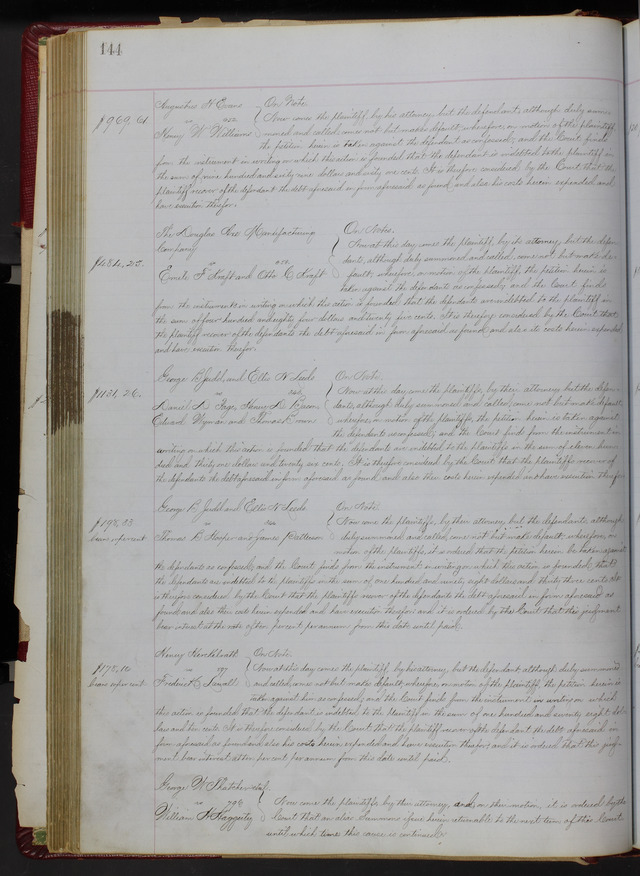 144
Augustus H Evans } On Note.
$969.61 vs 252 Now comes the plaintiff, by his attorney, but the defendant, although duly summ-
Henry W Williams moned and called, comes not but makes default; wherefore, on motion of the plaintiff,
the petition herein is taken against the defendant as confessed; and the Court finds
from the instrument in writing on which this action is founded that the defendant is indebted to the plaintiff in
the sum of nine hundred and sixty nine dollars and sixty one cents. It is therefore considered by the Court that the
plaintiff recover of the defendant the debt aforesaid in form aforesaid as found, and also his costs herein expended and
have execution therefor.
The Douglas Axe Manufacturing On Notes.
Company } Now at this day, comes the plaintiff, by its attorney, but the defen-
$484.25. vs dants, although duly summoned and called, come not but make de-
Emile F Kraft and Otto C Kraft fault; wherefore, on motion of the plaintiff, the petition herein is
taken against the defendants as confessed; and the Court finds
from the instruments in writing on which this action is founded that the defendants are indebted to the plaintiff in
the sum of four hundred and eighty four dollars and twenty five cents. It is therefore considered by the Court that
the plaintiff recover of the defendants the debt aforesaid in form aforesaid as found, and also its costs herein expended
and have execution therefor.
George B Judd, and Ellis N Leeds On Note.
$1131.26. vs } Now at this day come the plaintiffs, by their attorney but the defen-
Daniel D Page, Henry D Bacon dants, although duly summoned and called, come not but make default;
Edward Wyman and Thomas wherefore, on motion of the plaintiffs, the petition herein is taken against
the defendants as confessed; and the Court finds from the instrument in
writing on which this action is founded that the defendants are indebted to the plaintiffs in the sum of eleven hun-
dred and thirty one dollars and twenty six cents. It is therefore considered by the Court that the plaintiffs recover of
the defendants the debt aforesaid in form aforesaid as found, and also their costs herein expended and have execution therefor
George B Judd and Ellis N Leeds On Note.
$198.33 vs } Now come the plaintiffs, by their attorney, but the defendants, although
bears 10 per cent Thomas B Hooper and James Patterson duly summoned and called, come not but make default; wherefore, on
motion of the plaintiffs, it is ordered that the petition herein be taken against
the defendants as confessed; and the Court finds from the instrument in writing on which this action is founded, that
the defendants are indebted to the plaintiffs in the sum of one hundred and ninety eight dollars and thirty three cents. It
is therefore considered by the Court that the plaintiffs recover of the defendants the debt aforesaid, in form aforesaid as
found and also their costs herein expended and have execution therefor; and it is ordered by the Court that this judgment
bear interest at the rate of ten per cent per annum from this date until paid.
Henry On Note.
$178.10 vs } Now at this day comes the plaintiff, by his attorney, but the defendant although duly summoned
bears 10 per cent Frederick and called, comes not but makes default; wherefore, on motion of the plaintiff, the petition herein is
taken against him as confessed; and the Court finds from the instrument in writing on which
this action is founded that the defendant is indebted to the plaintiff in the sum of one hundred and seventy eight dol-
lars and ten cents. It is therefore considered by the Court that the plaintiff recover of the defendant the debt aforesaid in
form aforesaid as found and also his costs herein expended and have execution therefor; and it is ordered that this judg-
ment bear interest at ten per cent per annum from this date until paid.
George W Thatcher et al
vs 296 } Now come the plaintiffs, by their attorney, and, on their motion, it is ordered by the
William H Haggerty Court that an alias Summons issue herein returnable to the next term of this Court
until which time this cause is continued.